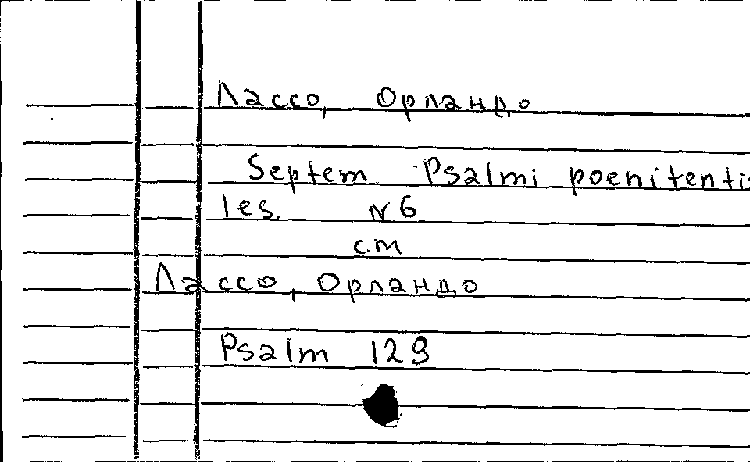 Лассо, Орландо
Septem Psalmi poenitentia
les. N6
см
Лассо, Орландо
Psalm 129